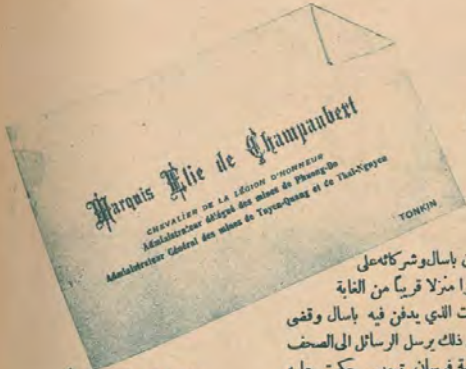 Marquis Elie de Champaubert
CHEVALIER DE LA LÉGION D'HONNEUR
Administrateur délégué des mines de Phuong-Do
Administrateur Général des mines de Tuyen-Quang et de Thaï-Nguyen
TONKIN
باسال وشركائه على
را منزلا قريباً من الغابة
ت الذي يدفن فيه باسال وقضى
ذلك يرسل الرسائل الى الصحف